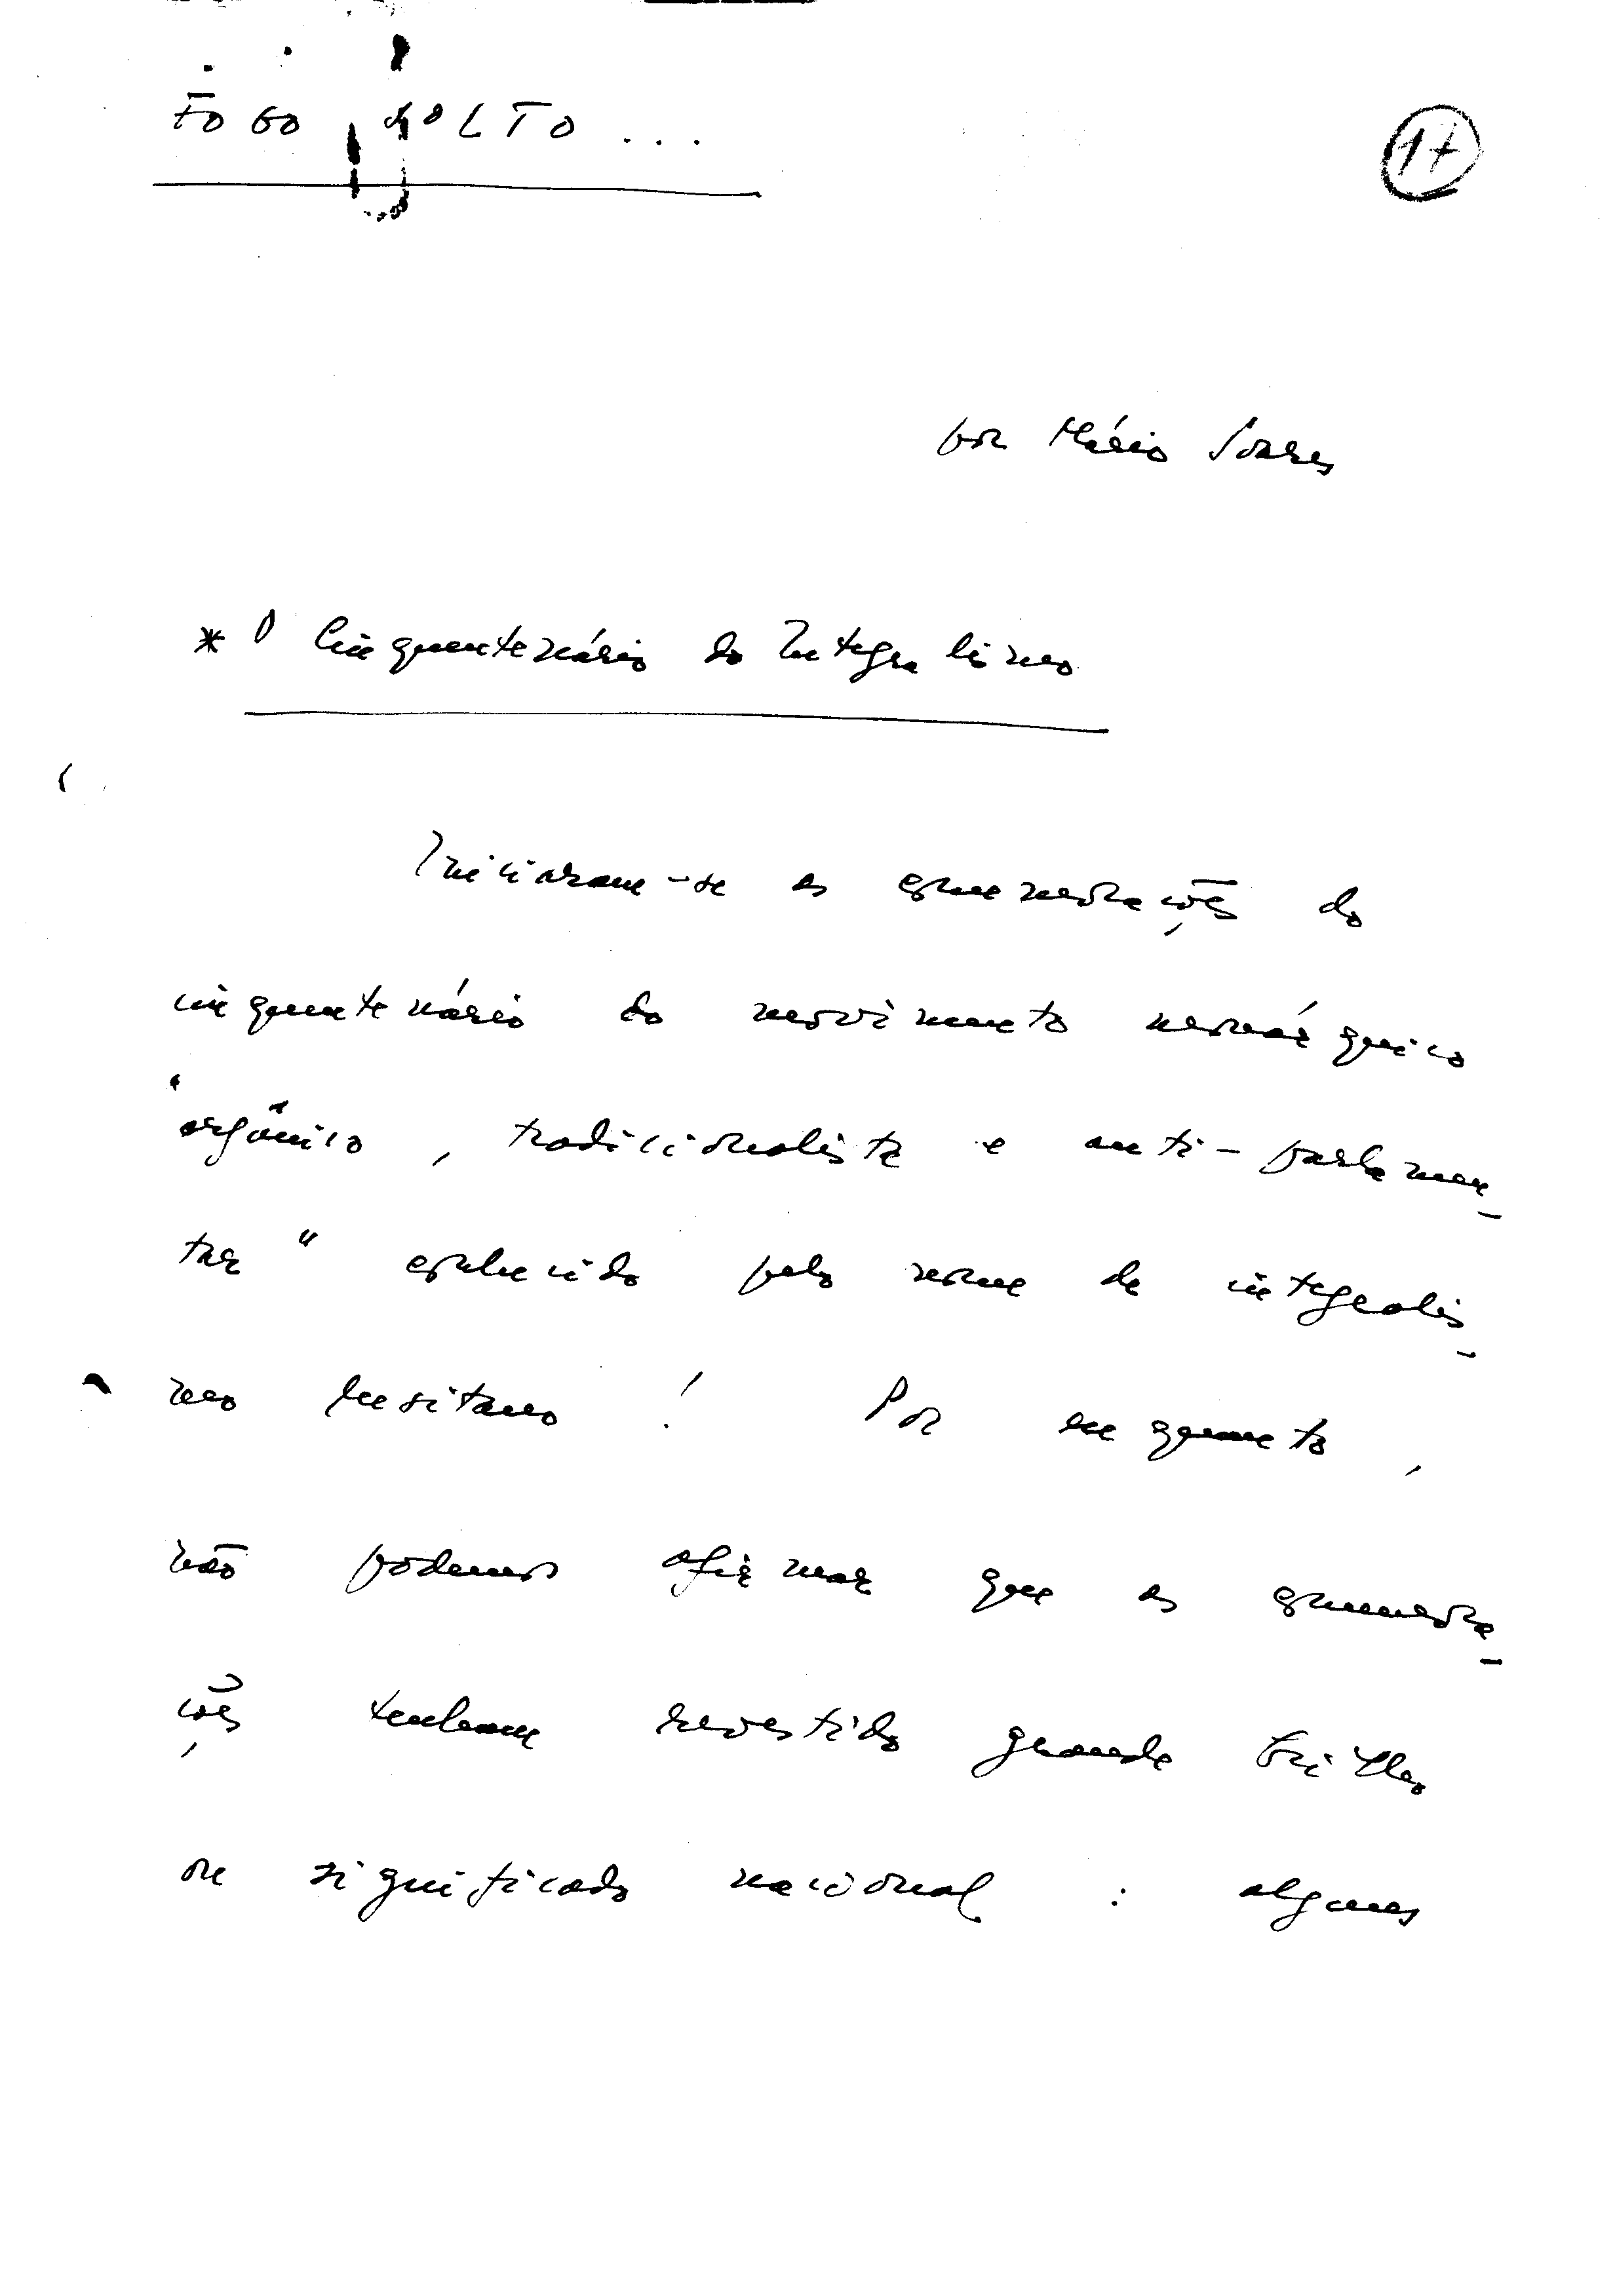 FOGO SOLTO...
17
por Mário Soares
* O Cinquentenário do Integralismo
Iniciaram-se as comemorações do
cinquentenário do movimento monárquico
"orgânico, tradicionalista e anti-parlamen-
tar" conhecido pelo nome de integralis-
mo lusitano! Por enquanto,
não podemos afirmar que as comemora-
ções tenham revestido grande brilho
ou significado nacional: algumas